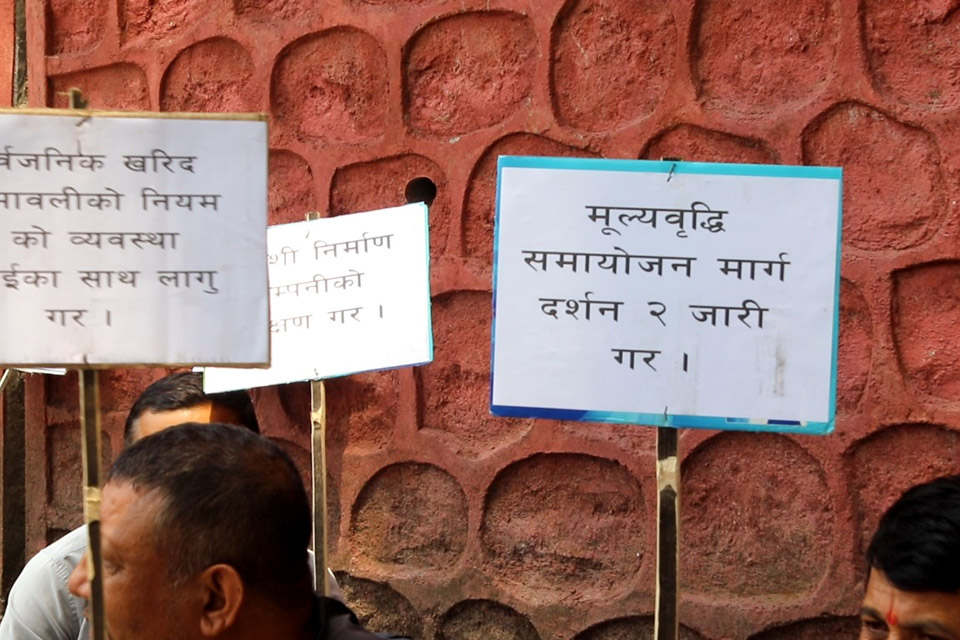 र्वजनिक खरिद
मावलीको नियम
को व्यवस्था
ईका साथ लागु
गर ।
शी निर्माण
म्पनीको
क्षण गर ।
मूल्यवृद्धि
समायोजन मार्ग
दर्शन २ जारी
गर ।